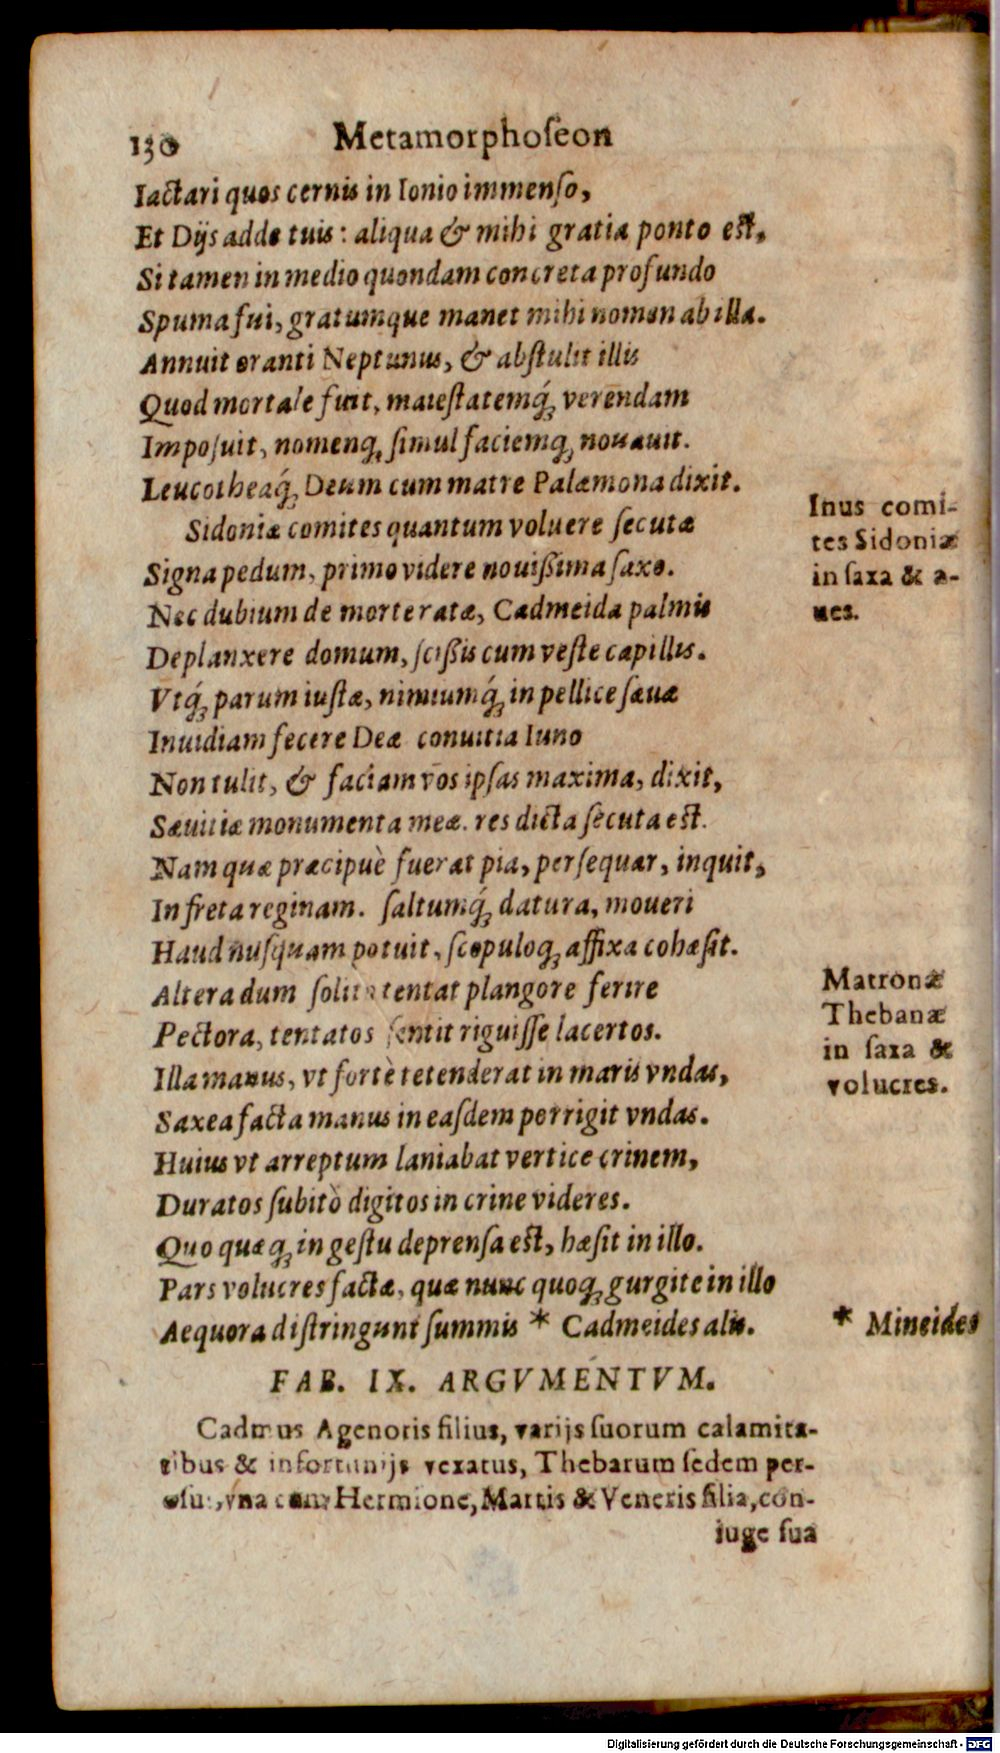 130 Metamorphoſeon
Iactari quos cernis in Ionio immenſo,
Et Dijs adde tuis: aliqua & mihi gratia ponto est,
Si tamen in medio quondam concreta profundo
Spuma fui, gratumque manet mihi nomen ab illa.
Annuit oranti Neptunus, & abſtulit illis
Quod mortale fuit, maieſtatemq́; verendam
Impoſuit, nomenq; ſimul faciemq; nouauit.
Leucotheaq́; Deum cum matre Palæmona dixit.
Sidoniæ comites quantum voluere ſecutæ
Signa pedum, primo videre nouißima ſaxo.
Nec dubium de morte ratæ, Cadmeida palmis
Deplanxere domum, ſcißis cum veſte capillis.
Vtq́; parum iuſtæ, nimiumq́; in pellice ſæuæ
Inuidiam fecere Deæ conuitia Iuno
Non tulit, & faciam vos ipſas maxima, dixit,
Sæuitiæ monumenta meæ. res dicta ſecuta est.
Nam quæ præcipuè fuerat pia, perſequar, inquit,
In freta reginam. ſaltumq́; datura, moueri
Haud nuſquam potuit, ſcopuloq; affixa cohæſit.
Altera dum ſolito tentat plangore ferire
Pectora, tentatos ſentit riguiſſe lacertos.
Illa manus, vt fortè tetenderat in maris vndas,
Saxea facta manus in eaſdem porrigit vndas.
Huius vt arreptum laniabat vertice crinem,
Duratos ſubitò digitos in crine videres.
Quo quæq; in geſtu deprenſa est, hæſit in illo.
Pars volucres factæ, quæ nunc quoq; gurgite in illo
Aequora diſtringunt ſummis * Cadmeides alis.
Inus comi-
tes Sidoniæ
in ſaxa & a-
ues.
Matronæ
Thebanæ
in ſaxa &
volucres.
* Mineides
FAB. IX. ARGVMENTVM.
Cadmus Agenoris filius, varijs ſuorum calamita-
tibus & infortunijs vexatus, Thebarum ſedem per-
oſus, vna cum Hermione, Martis & Veneris filia, con-
iuge ſua
Digitalisierung gefördert durch die Deutsche Forschungsgemeinschaft - DFG